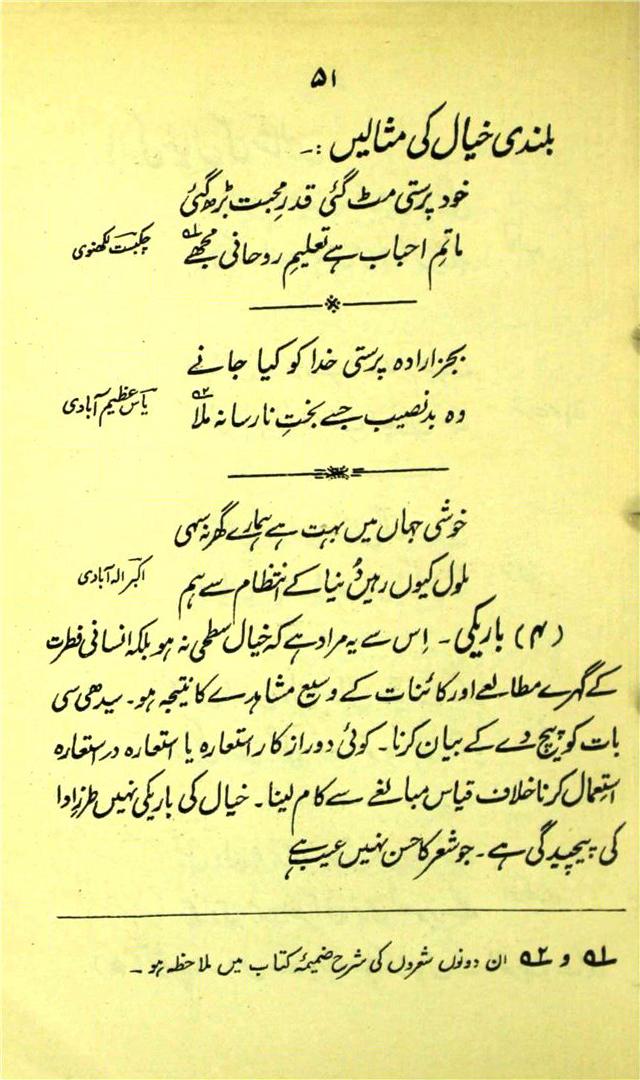 ۵۱
بلندی خیال کی مثالیں :۔
خود پرستی مٹ گئی قدرِ محبت بڑھ گئی
ماتمِ احباب ہے تعلیمِ روحانی مجھے ؂۱ چکبست لکھنوی
بجز ارادہ پرستی خدا کو کیا جانے
وہ بدنصیب جسے بختِ نارسا نہ ملا ؂۲ یاس عظیم آبادی
خوشی جہاں میں بہت ہے ہمارے گھر نہ سہی
ملول کیوں رہیں دُنیا کے انتظام سے ہم اکبر الہ آبادی
(۴) باریکی۔ اِس سے یہ مراد ہے کہ خیال سطحی نہ ہو بلکہ انسانی فطرت
کے گہرے مطالعے اور کائنات کے وسیع مشاہدے کا نتیجہ ہو۔ سیدھی سی
بات کو پیچ دے کے بیان کرنا۔ کوئی دوراز کار استعارہ یا استعارہ در استعارہ
استِعمال کرنا خلاف قیاس مبالغے سے کام لینا۔ خیال کی باریکی نہیں طرزِ ادا
کی پیچیدگی ہے۔ جو شعر کا حسن نہیں عیب ہے
؂۱ و ؂۲ ان دونوں شعروں کی شرح ضمیمۂ کتاب میں ملاحظہ ہو۔